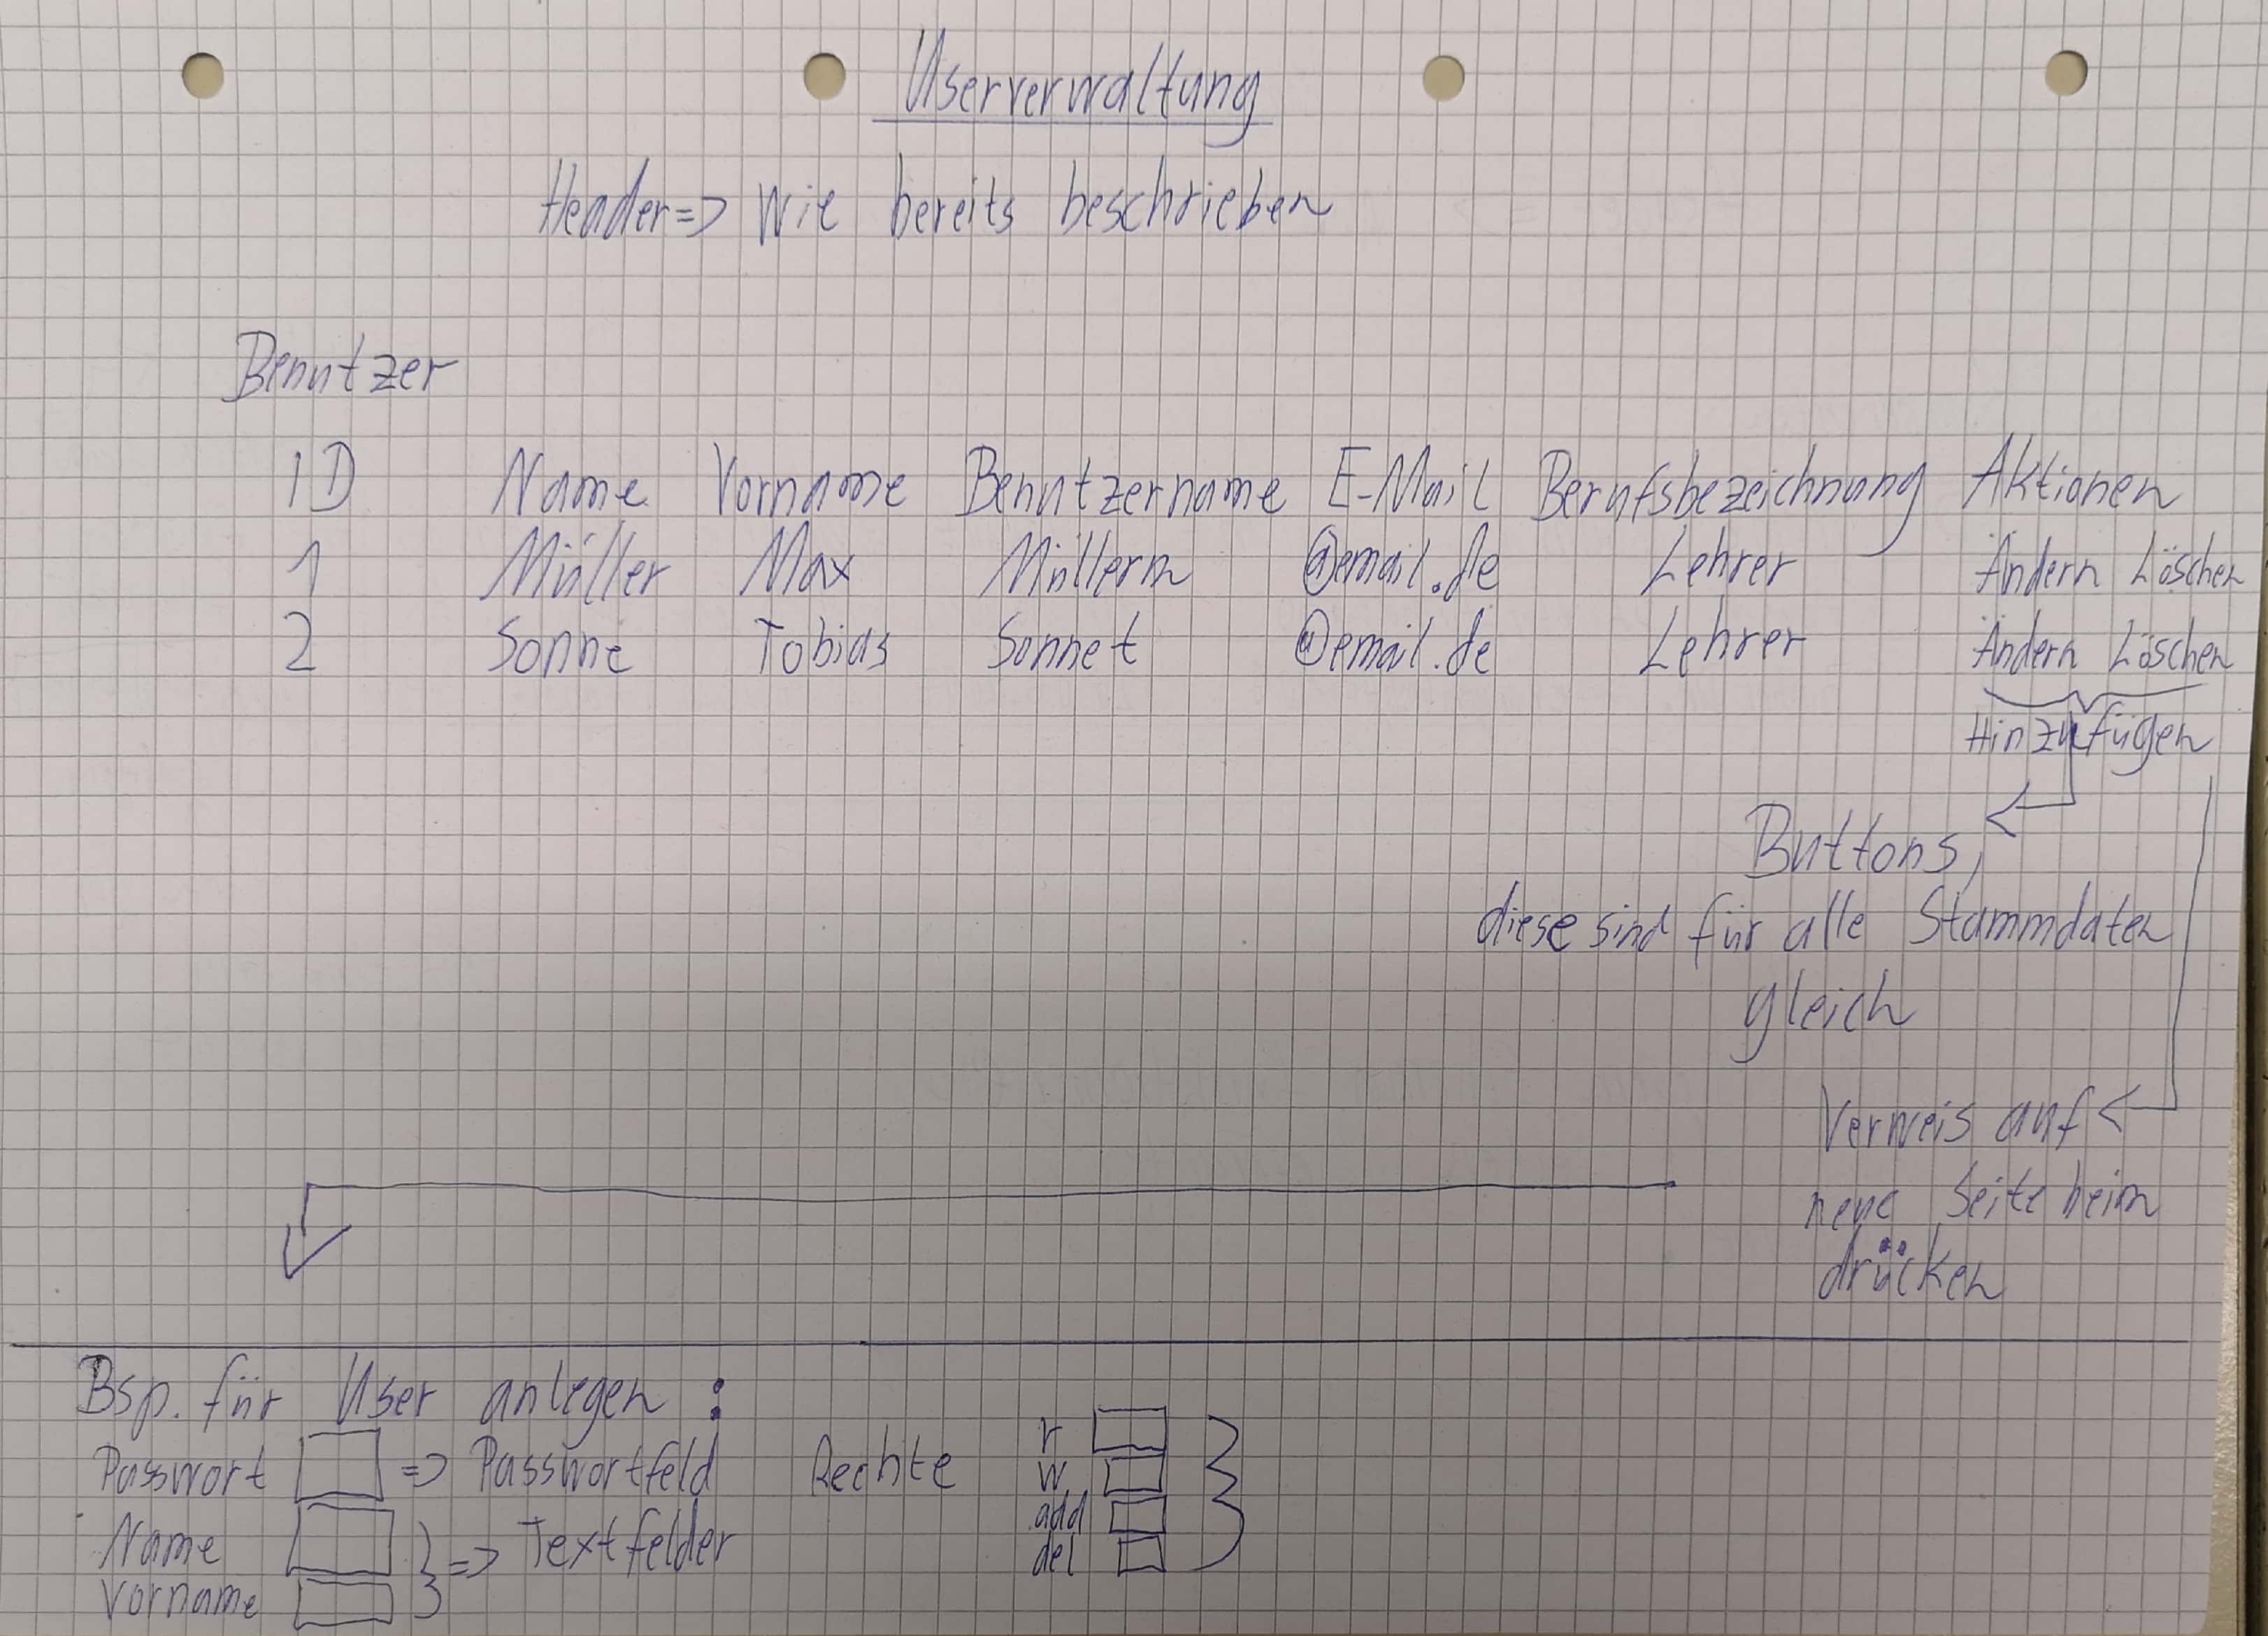 Userverwaltung
Header=> Wie bereits beschrieben
Benutzer
ID Name Vorname Benutzername E-Mail Berufsbezeichnung Aktionen
1 Müller Max Müllerm @email.de Lehrer Ändern Löschen
2 Sonne Tobias Sonnet @email.de Lehrer Ändern Löschen
Hinzufügen
Buttons,
diese sind für alle Stammdaten
gleich
Verweis auf
neue Seite beim
drücken
Bsp. für User anlegen :
Passwort => Passwortfeld Rechte r
w
add
Name => Textfelder del
Vorname